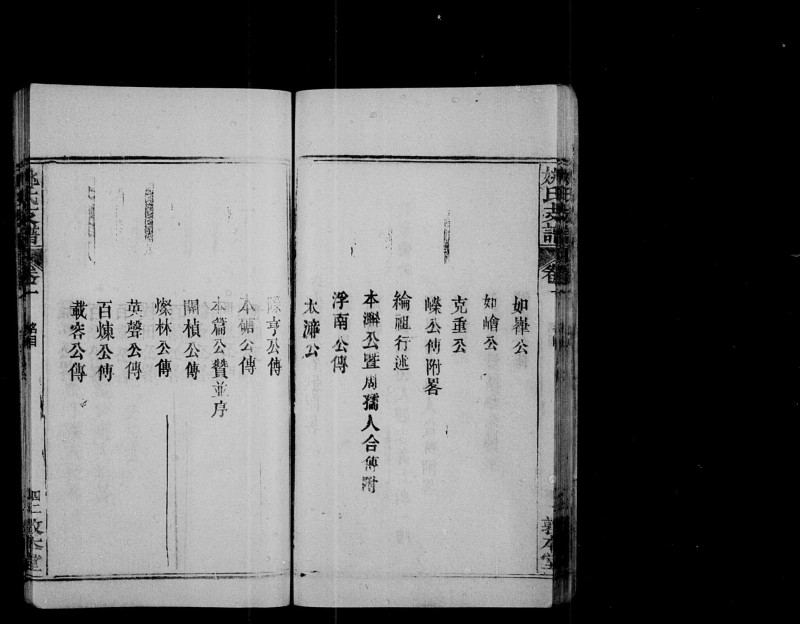 姚氏支譜
卷一
敦本堂
如嶽公
如嶒公
克重公
嶸公傳附畧
綸祖行述
本瀚公暨周孺人合傳附
浮南公傳
太漳公
公傳
本碩公傳
本篇公贊並序
開楨公傳
燦林公傳
英聲公傳
百煉公傳
載容公傳
姚氏支譜
卷一
敦本堂